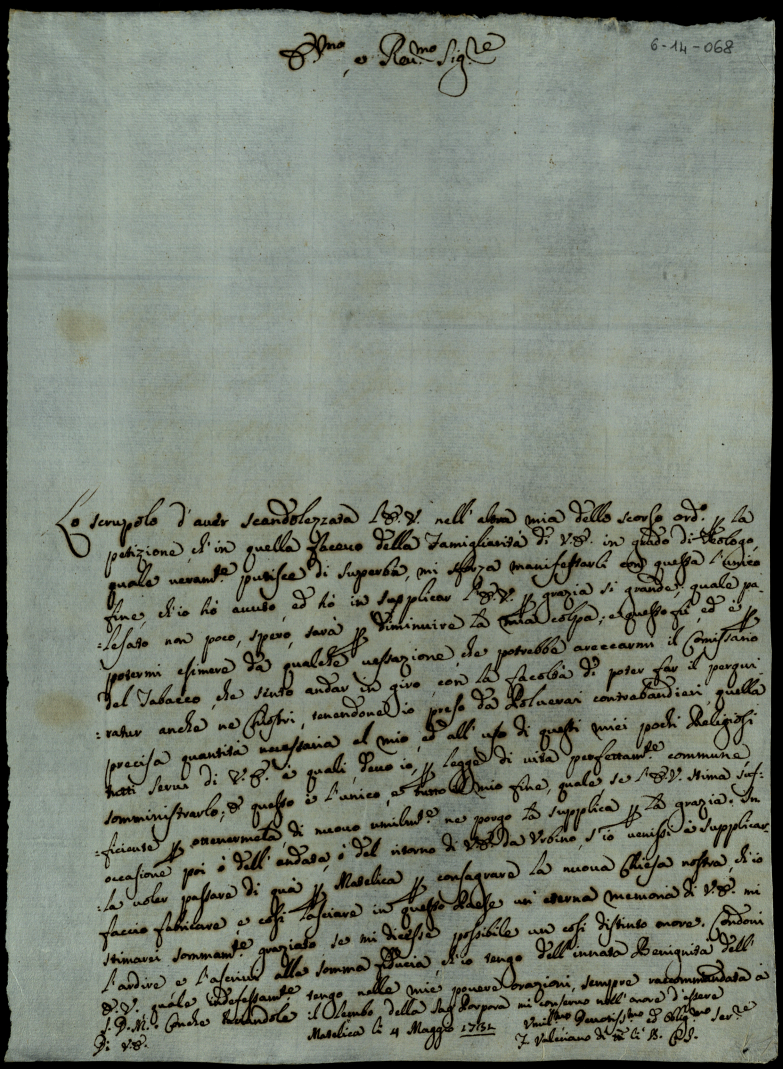 6-14-068
Em̃o e Reu.mo Sig.re
Lo scrupolo d'auer scandolezzata l'E.V. nell'altra mia dello scorso ord.o p la
petizione, ch'in quella faceuo della Famigliarità di V.E. in grado di Teologo,
quale ueram.te putisce di superba, mi sforza manifestarli con questa l'unico
fine, ch'io hò auuto, ed hò in supplicar l'E.V. p grazia si grande, quale pa-
-lesato non poco, spero, sarà p diminuire la mia colpa; e questo fù, ed è p
potermi esimere da qualche uessazione, che potrebbe areccarmi il Comissario
del Tabacco, che sento andar in giro, con la facoltà di poter far il perqui-
-ratur anche ne Chiostri, tenendone io preso da Poluerari contrabandieri quella
precisa quantità necessaria al mio, ed all'uso di questi miei pochi Religiosi
tutti Serui di V.E. à quali deuo io, p legge di uita perfettam.te commune,
somministrarlo; e questo è l'unico, e tutto il mio fine, quale, se l'E.V. stima suf-
-ficiente p ottenermela, di nuouo umilm.te ne porgo la supplica p la grazia. In
occasione poi ò dell'andata, ò del ritorno di V.E. da Urbino, s'io uenissi à supplicar-
-la uoler passare di quà p Matelica p consagrare la nuoua Chiesa nostra, ch'io
faccio fabricare, e così lasciare in questo Paese un'eterna memoria di V.E. mi
stimarei sommam.te graziato se mi dicesse possibile un così distinto onore. Condoni
l'ardire e l'ascriui alla somma fiducia, ch'io tengo dell'innata Benignità dell'
E.V. quale indefessam.te tengo nelle mie pouere orazioni, sempre raccommandata à
S.D.M. e Conche baciandole il Lembo della Sag. Porpora mi conseruo nell'onore d'essere
Di V.E.
Matelica li 4 Maggio 1731
Vmil.mo Deuotiss.mo ed Oblig.mo Ser.re
F. Valeriano di